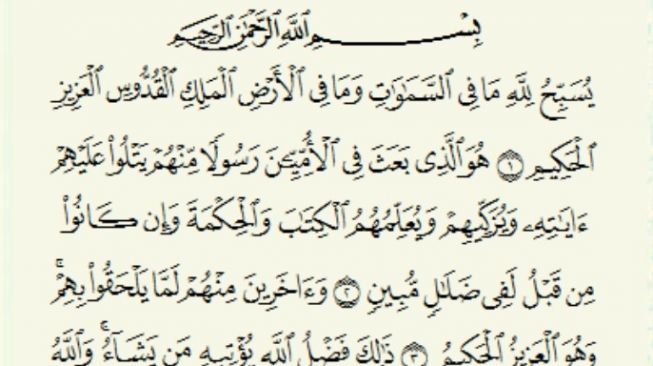 بِسْمِ ٱللَّهِ ٱلرَّحْمَٰنِ ٱلرَّحِيمِ
يُسَبِّحُ لِلَّهِ مَا فِى ٱلسَّمَٰوَٰتِ وَمَا فِى ٱلْأَرْضِ ٱلْمَلِكِ ٱلْقُدُّوسِ ٱلْعَزِيزِ
ٱلْحَكِيمِ ١ هُوَ ٱلَّذِى بَعَثَ فِى ٱلْأُمِّيِّـۧنَ رَسُولًا مِّنْهُمْ يَتْلُوا۟ عَلَيْهِمْ
ءَايَٰتِهِۦ وَيُزَكِّيهِمْ وَيُعَلِّمُهُمُ ٱلْكِتَٰبَ وَٱلْحِكْمَةَ وَإِن كَانُوا۟
مِن قَبْلُ لَفِى ضَلَٰلٍ مُّبِينٍ ٢ وَءَاخَرِينَ مِنْهُمْ لَمَّا يَلْحَقُوا۟ بِهِمْ ۚ
وَهُوَ ٱلْعَزِيزُ ٱلْحَكِيمُ ٣ ذَٰلِكَ فَضْلُ ٱللَّهِ يُؤْتِيهِ مَن يَشَآءُ ۚ وَٱللَّهُ